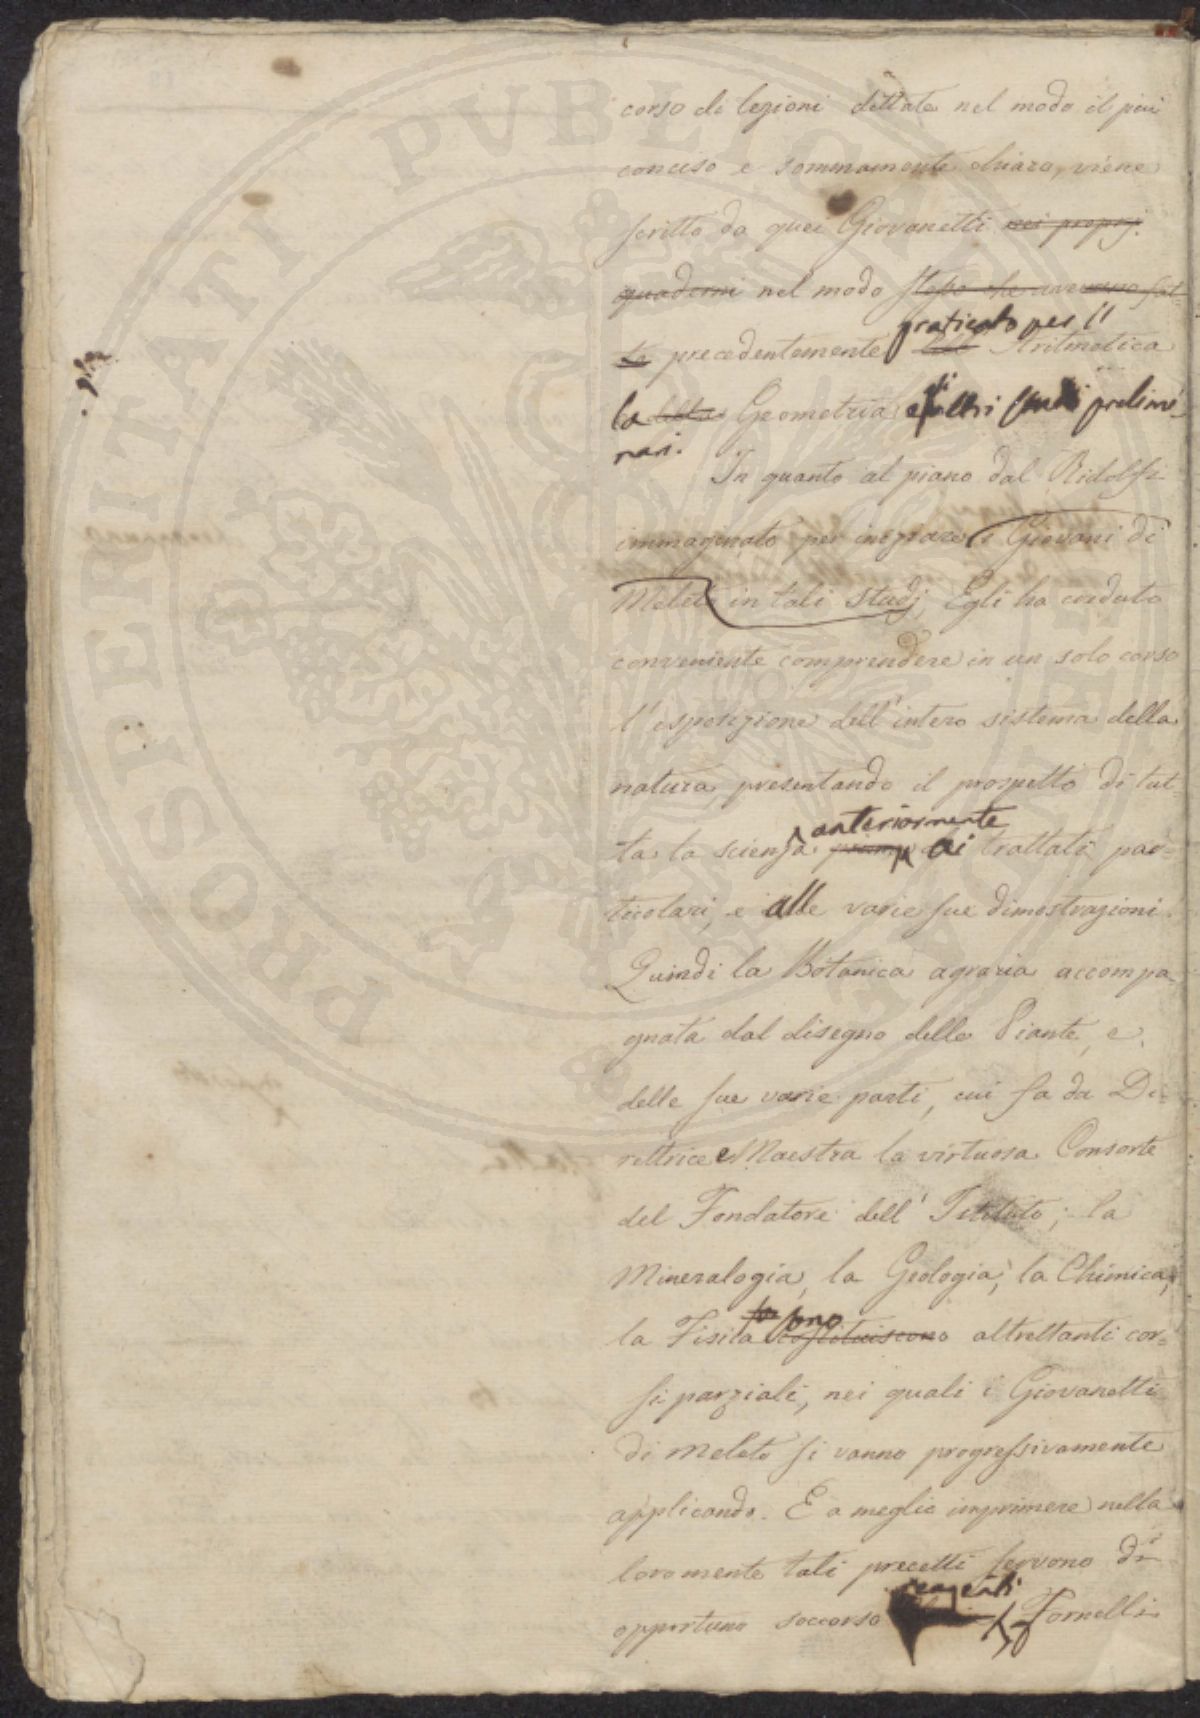 corso di lezioni dettate nel modo il più
conciso e sommamente chiaro, viene
scritto da quei Giovanetti nei proprj
quaderni nel modo stesso che avevano fat-
praticato per l'
to precedentemente Aritmetica
la della Geometria e gli altri studi prelimi-
nari.
In quanto al piano dal Ridolfi
immaginato per iniziare i Giovani di
Meleto in tali studj, Egli ha creduto
conveniente comprendere in un solo corso
l'esposizione dell'intero sistema della
natura, presentando il prospetto di tut-
anteriormente
ta la scienza prima ai trattati par-
ticolari, e alle varie sue dimostrazioni.
Quindi la Botanica agraria accompa
gnata dal disegno delle Piante, e
delle sue varie parti, cui fa da Di-
rettrice e Maestra la virtuosa Consorte
del Fondatore dell'Istituto; la
Mineralogia, la Geologia, la Chimica,
sono
la Fisica costituiscono altrettanti cor-
si parziali, nei quali i Giovanetti
di Meleto si vanno progressivamente
applicando. E a meglio imprimere nella
loro mente tali precetti servono di
reagenti
opportuno soccorso Fornelli
PROSPERITATI PVBLICAE